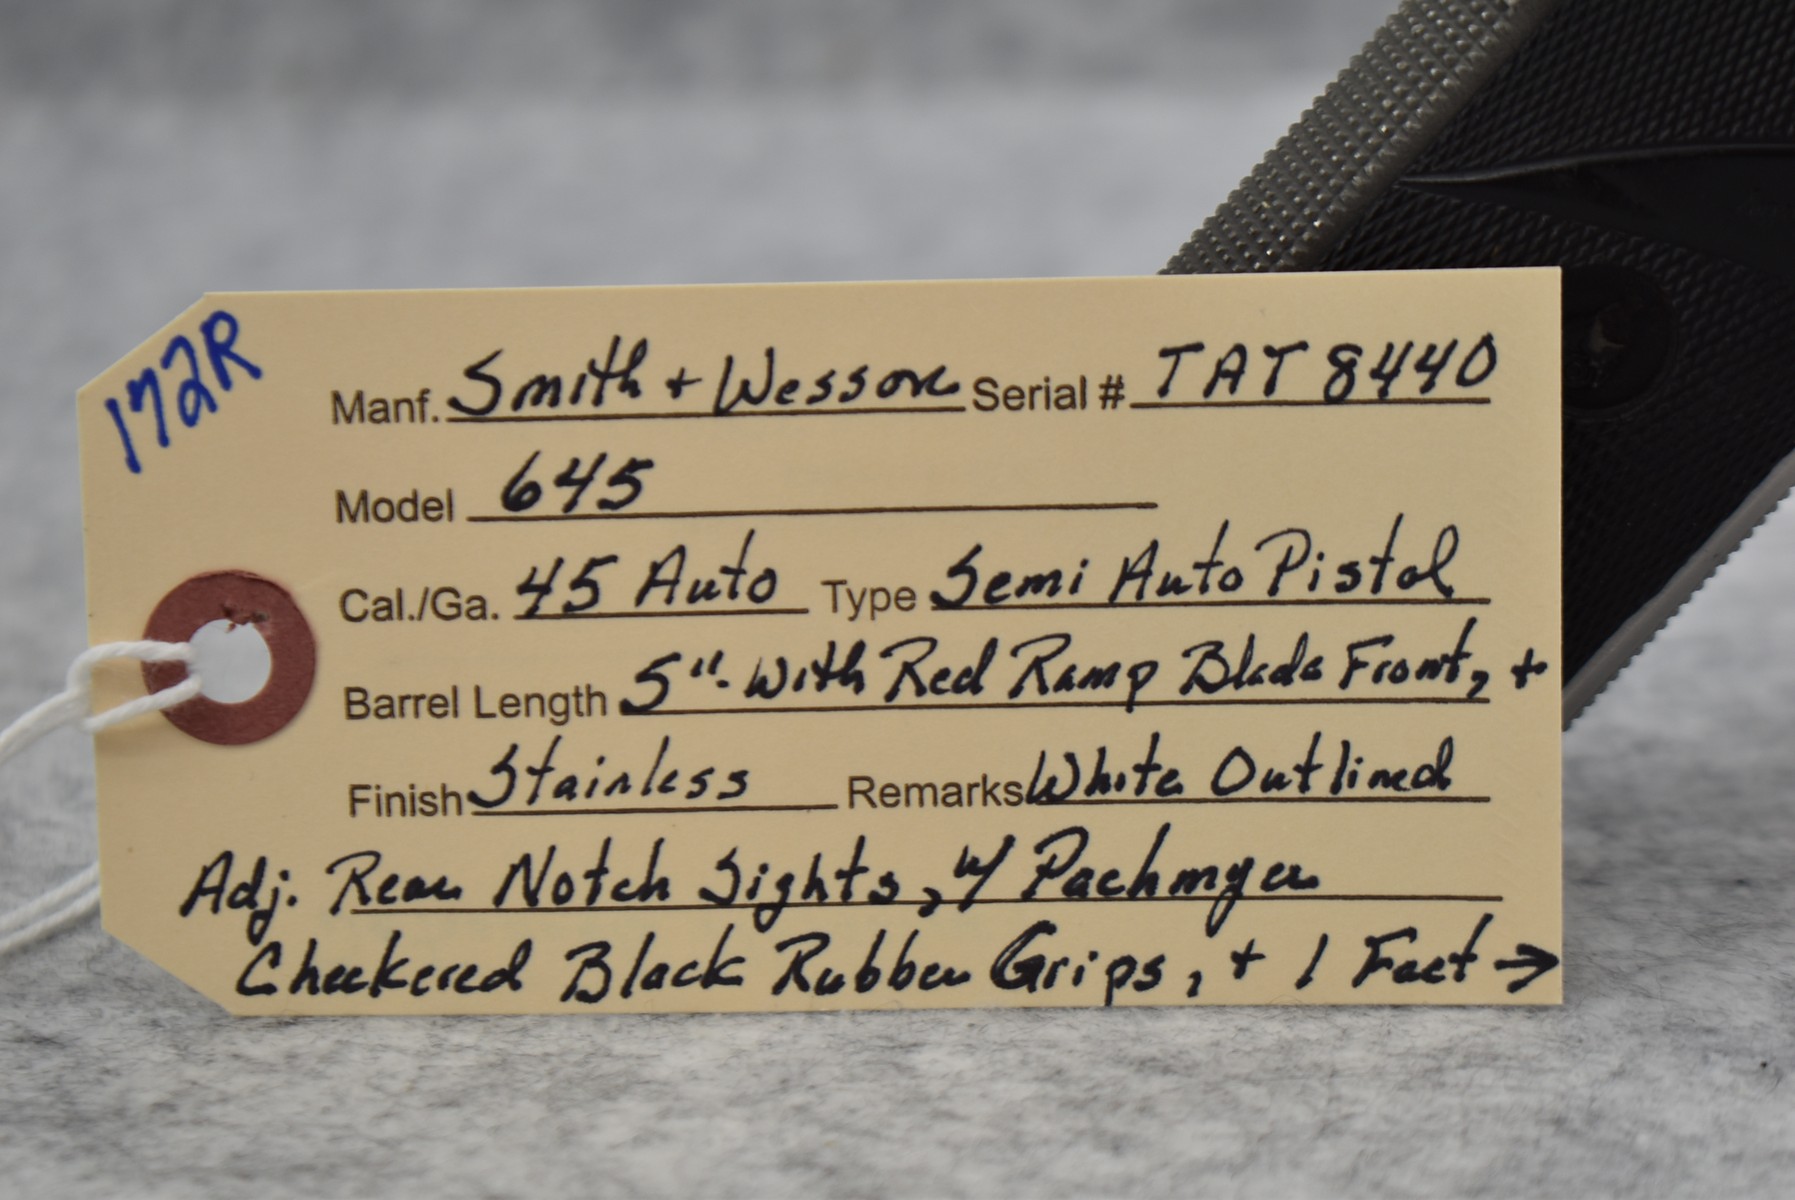 172R
Manf. Smith + Wesson Serial # TAT8440
Model 645
Cal./Ga. 45 Auto Type Semi Auto Pistol
Barrel Length 5". With Red Ramp Blade Front, +
Finish Stainless Remarks White Outlined
Adj. Rear Notch Sights, w/ Pachmyer
Checkered Black Rubber Grips, + 1 Fact →